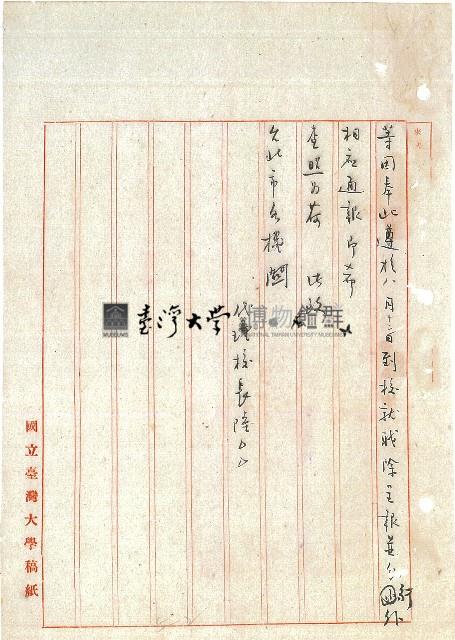 等因奉此遵於八月十二日到校就職除呈報並分行外
相應通報即希
查照為荷　此致
全北市各機關
代理校長陸
國立臺灣大學稿紙
臺灣大學 博物館群
MUSEUMS NATIONAL TAIWAN UNIVERSITY MUSEUMS